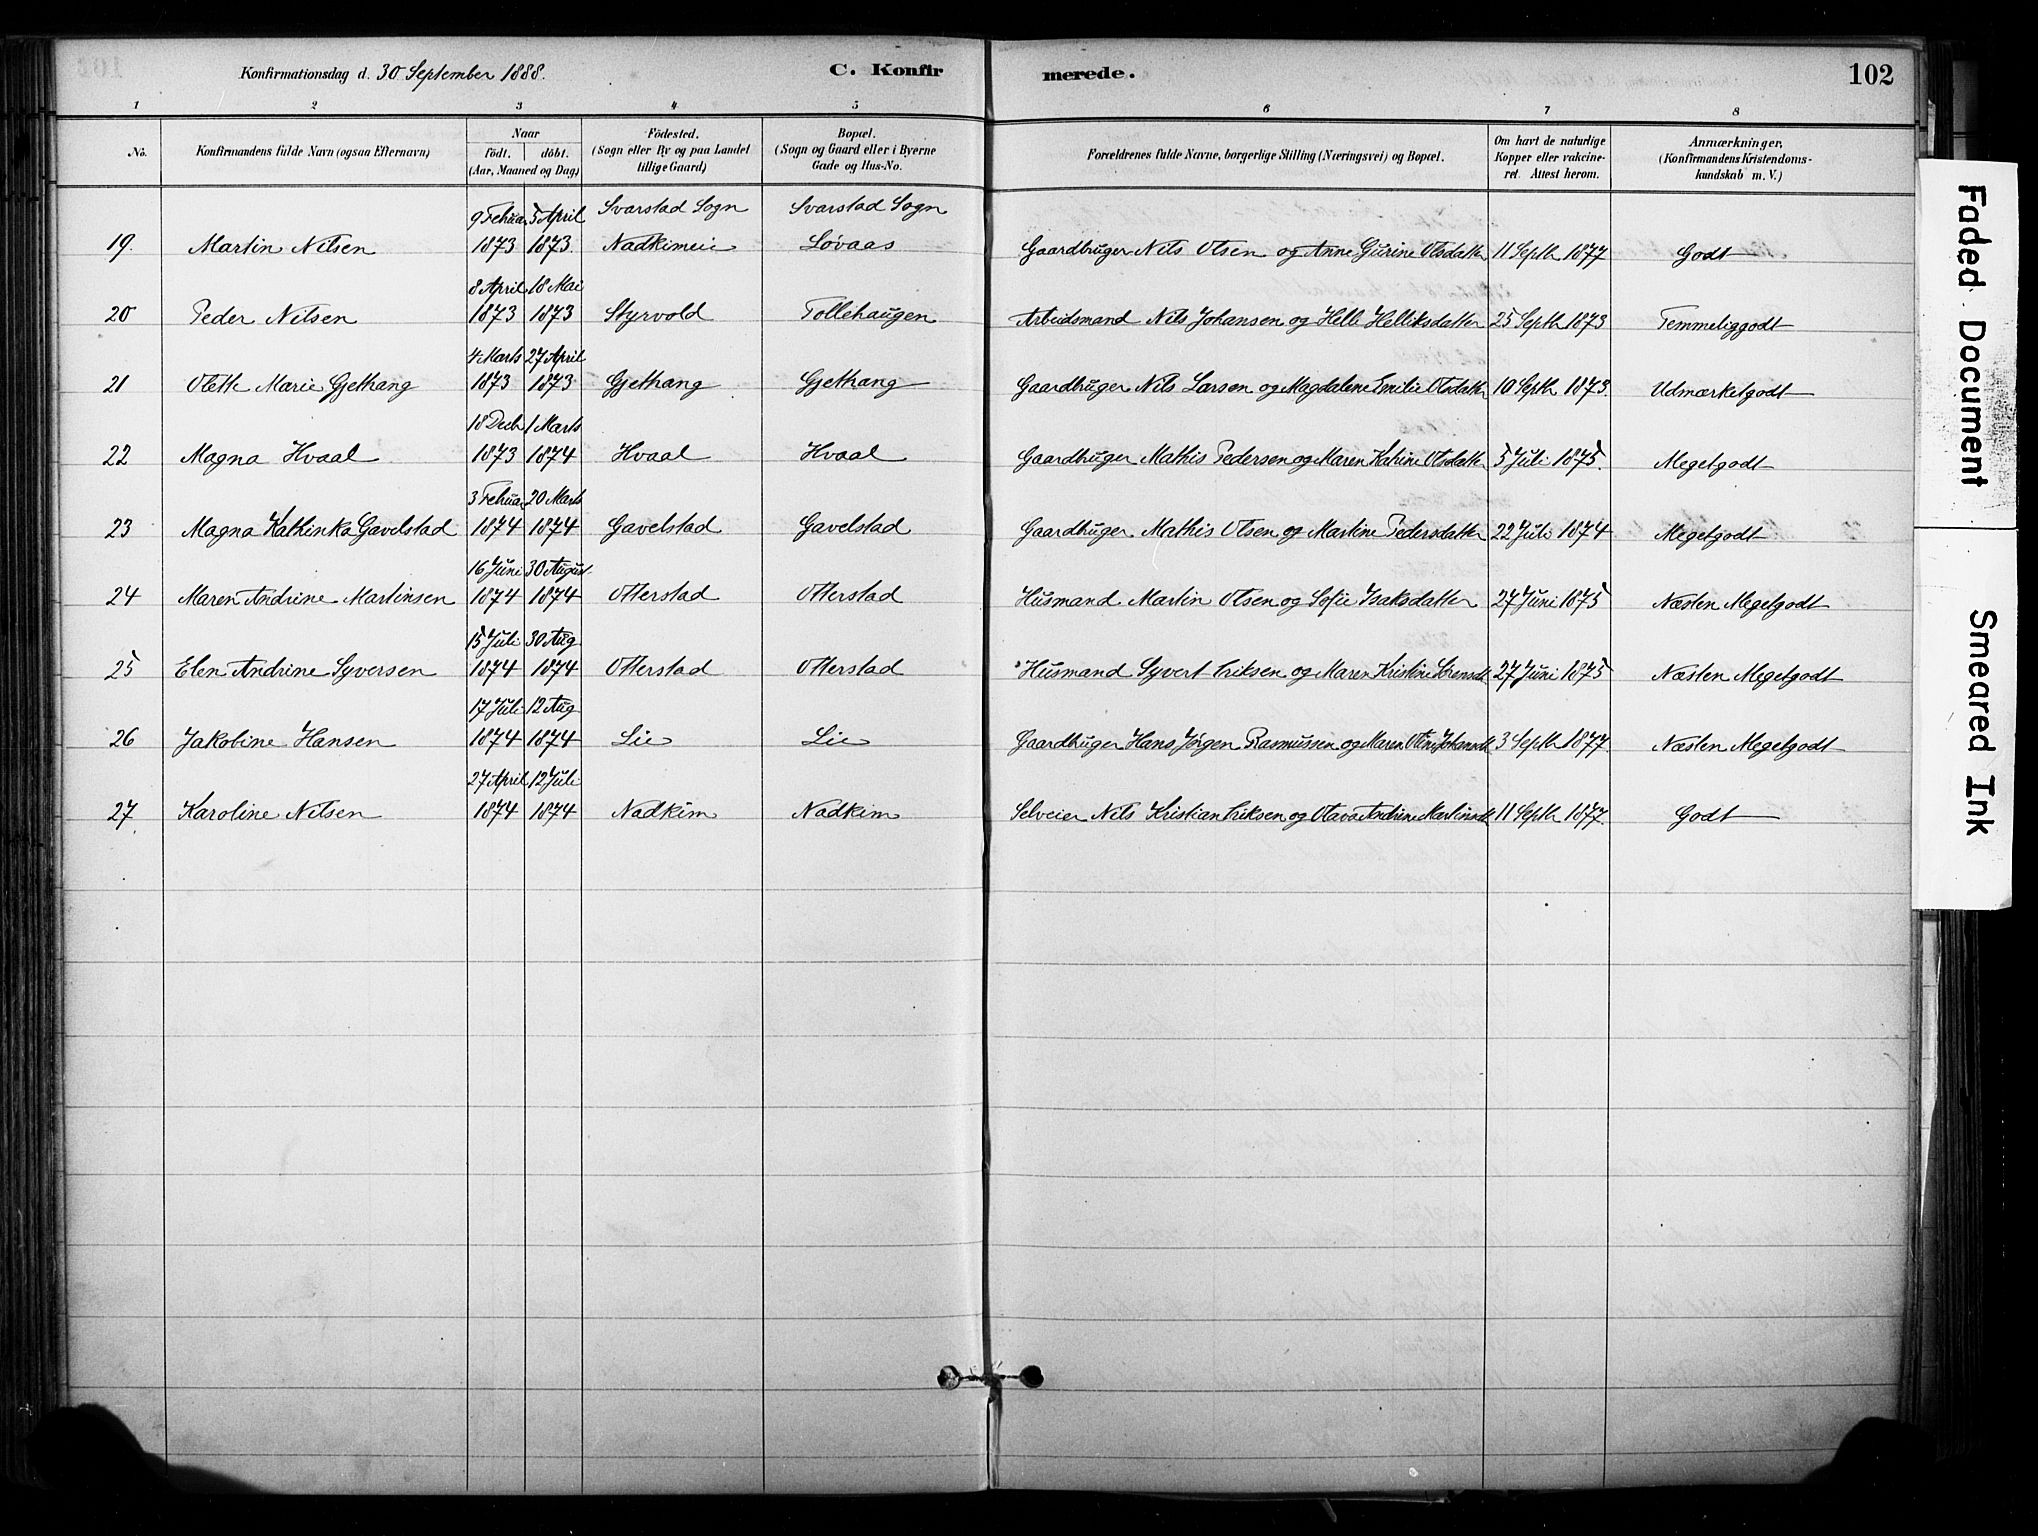 Konfirmationsdag d. 30 September 1888. C. Konfirmerede. 102
1 2 3 4 5 6 7 8
No. Konfirmandens fulde Navn (ogsaa Efternavn) Naar födt. döbt. (Aar, Maaned og Dag) Födested. (Sogn eller By og paa Landet tillige Gaard) Bopæl. (Sogn og Gaard eller i Byerne Gade og Hus-No. Forældrenes fulde Navne, borgerlige Stilling (Næringsvei) og Bopæl. Om havt de naturlige Kopper eller vakcineret. Attest herom. Anmærkninger, (Konfirmandens Kristendomskundskab m. V.)
9 Febuar 5 April Svarstad Sogn Svarstad Sogn
19. Martin Nilsen 1873 1873 Nadkimeie Lövaas Gaardbruger Nils Olsen og Anne Gurine Olsdatter 11 Septb 1877 Godt
8 April 18 Mai
20 Peder Nilsen 1873 1873 Styrvold Tollehaugen Arbeidsmand Nils Johansen og Helli Helliksdatter 25 Septb 1873 Temmeliggodt
4 Marts 27 April
21 Olette Marie Gjethang 1873 1873 Gjethang Gjethang Gaardbruger Nils Larsen og Magdalene Emilie Olsdatter 10 Septb 1873. Udmærketgodt
18 Decb 1 Marts
22 Magna Hvaal 1873 1874 Hvaal Hvaal Gaardbruger Mathis Pedersen og Maren Katrine Olsdatter 5 Juli 1875. Megetgodt
3 Febuar 20 Marts
23 Magna Kathinka Gavelstad 1874 1874 Gavelstad Gavelstad Gaardbuger Mathis Olsen og Martine Pedersdatter 22 Juli 1874 Megetgodt
16 Juni 30 August
24 Maren Andrine Martinsen 1874 1874 Otterstad Otterstad Husmand Martin Olsen og Sofie Isaksdatter 27 Juni 1875 Næsten Megetgodt
15 Juli 30 Aug
25 Elen Andrine Syversen 1874 1874 Otterstad Otterstad Husmand Syvert Eriksen og Maren Kristine Sörensdt 27 Juni 1875 Næsten Megetgodt
17 Juli 12 Aug
26 Jakobine Hansen 1874 1874 Lie Lie Gaardbruger Hans Jörgen Rasmussen og Maren Oline Johansdt 3 Septb 1877 Næsten Megetgodt
27 April 12 Juli
27. Karoline Nilsen 1874 1874 Nadkim Nadkim Selveier Nils Kristian Eriksen og Olava Andrine Martinsdt 11 Septb 1877. Godt
Faded Document
Smeared Ink